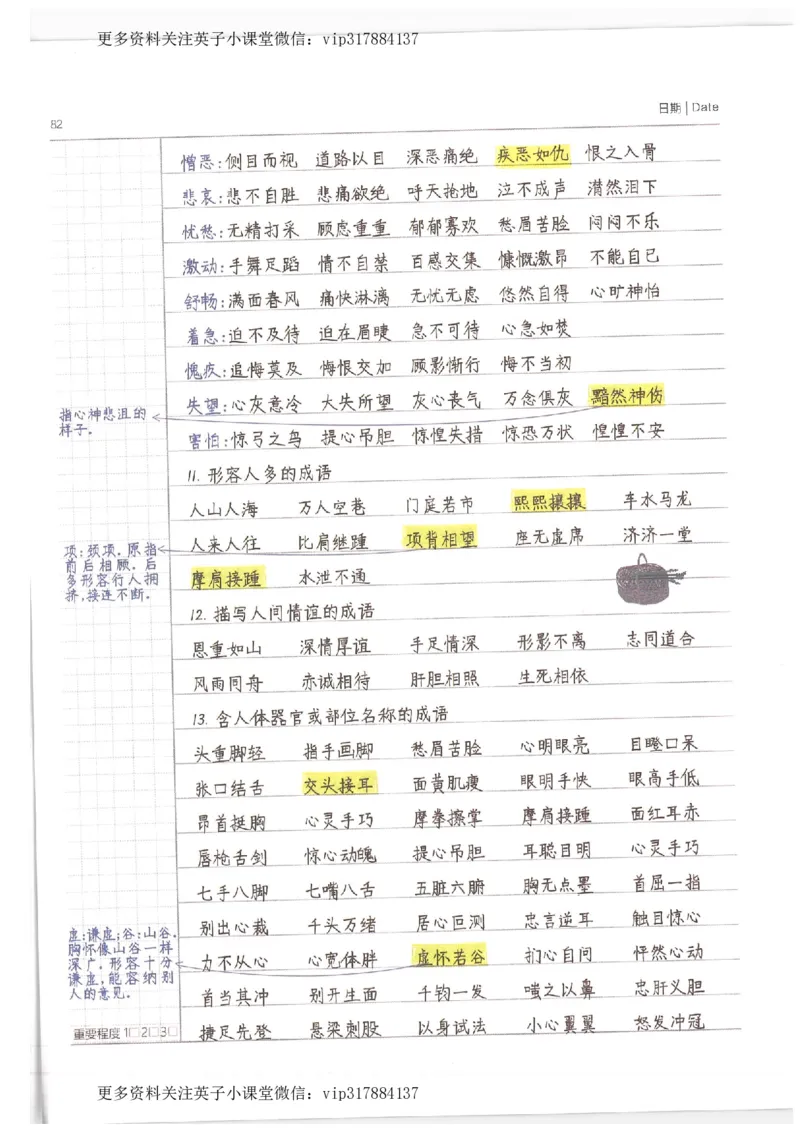 更多资料关注英子小课堂微信：vip317884137
日期 | Date
82
憎恶：侧目而视 道路以目 深恶痛绝 疾恶如仇 恨之入骨
悲哀：悲不自胜 悲痛欲绝 呼天抢地 泣不成声 潸然泪下
忧愁：无精打采 顾虑重重 郁郁寡欢 愁眉苦脸 闷闷不乐
激动：手舞足蹈 情不自禁 百感交集 慷慨激昂 不能自已
舒畅：满面春风 痛快淋漓 无忧无虑 悠然自得 心旷神怡
着急：迫不及待 迫在眉睫 急不可待 心急如焚
愧疚：追悔莫及 悔恨交加 顾影惭行 悔不当初
失望：心灰意冷 大失所望 灰心丧气 万念俱灰 黯然神伤
指心神悲沮的
样子。
害怕：惊弓之鸟 提心吊胆 惊惶失措 惊恐万状 惶惶不安
11. 形容人多的成语
人山人海 万人空巷 门庭若市 熙熙攘攘 车水马龙
人来人往 比肩继踵 项背相望 座无虚席 济济一堂
项：颈项。原指
前后相顾。后
多形容行人拥
挤，接连不断。
摩肩接踵 水泄不通
12. 描写人间情谊的成语
恩重如山 深情厚谊 手足情深 形影不离 志同道合
风雨同舟 赤诚相待 肝胆相照 生死相依
13. 含人体器官或部位名称的成语
头重脚轻 指手画脚 愁眉苦脸 心明眼亮 目瞪口呆
张口结舌 交头接耳 面黄肌瘦 眼明手快 眼高手低
昂首挺胸 心灵手巧 摩拳擦掌 摩肩接踵 面红耳赤
唇枪舌剑 惊心动魄 提心吊胆 耳聪目明 心灵手巧
七手八脚 七嘴八舌 五脏六腑 胸无点墨 首屈一指
别出心裁 千头万绪 居心叵测 忠言逆耳 触目惊心
力不从心 心宽体胖 虚怀若谷 扪心自问 怦然心动
虚：谦虚；谷：山谷。
胸怀像山谷一样
深广。形容十分
谦虚，能容纳别
人的意见。
首当其冲 别开生面 千钧一发 嗤之以鼻 忠肝义胆
捷足先登 悬梁刺股 以身试法 小心翼翼 怒发冲冠
重要程度 1□2□3□
更多资料关注英子小课堂微信：vip317884137